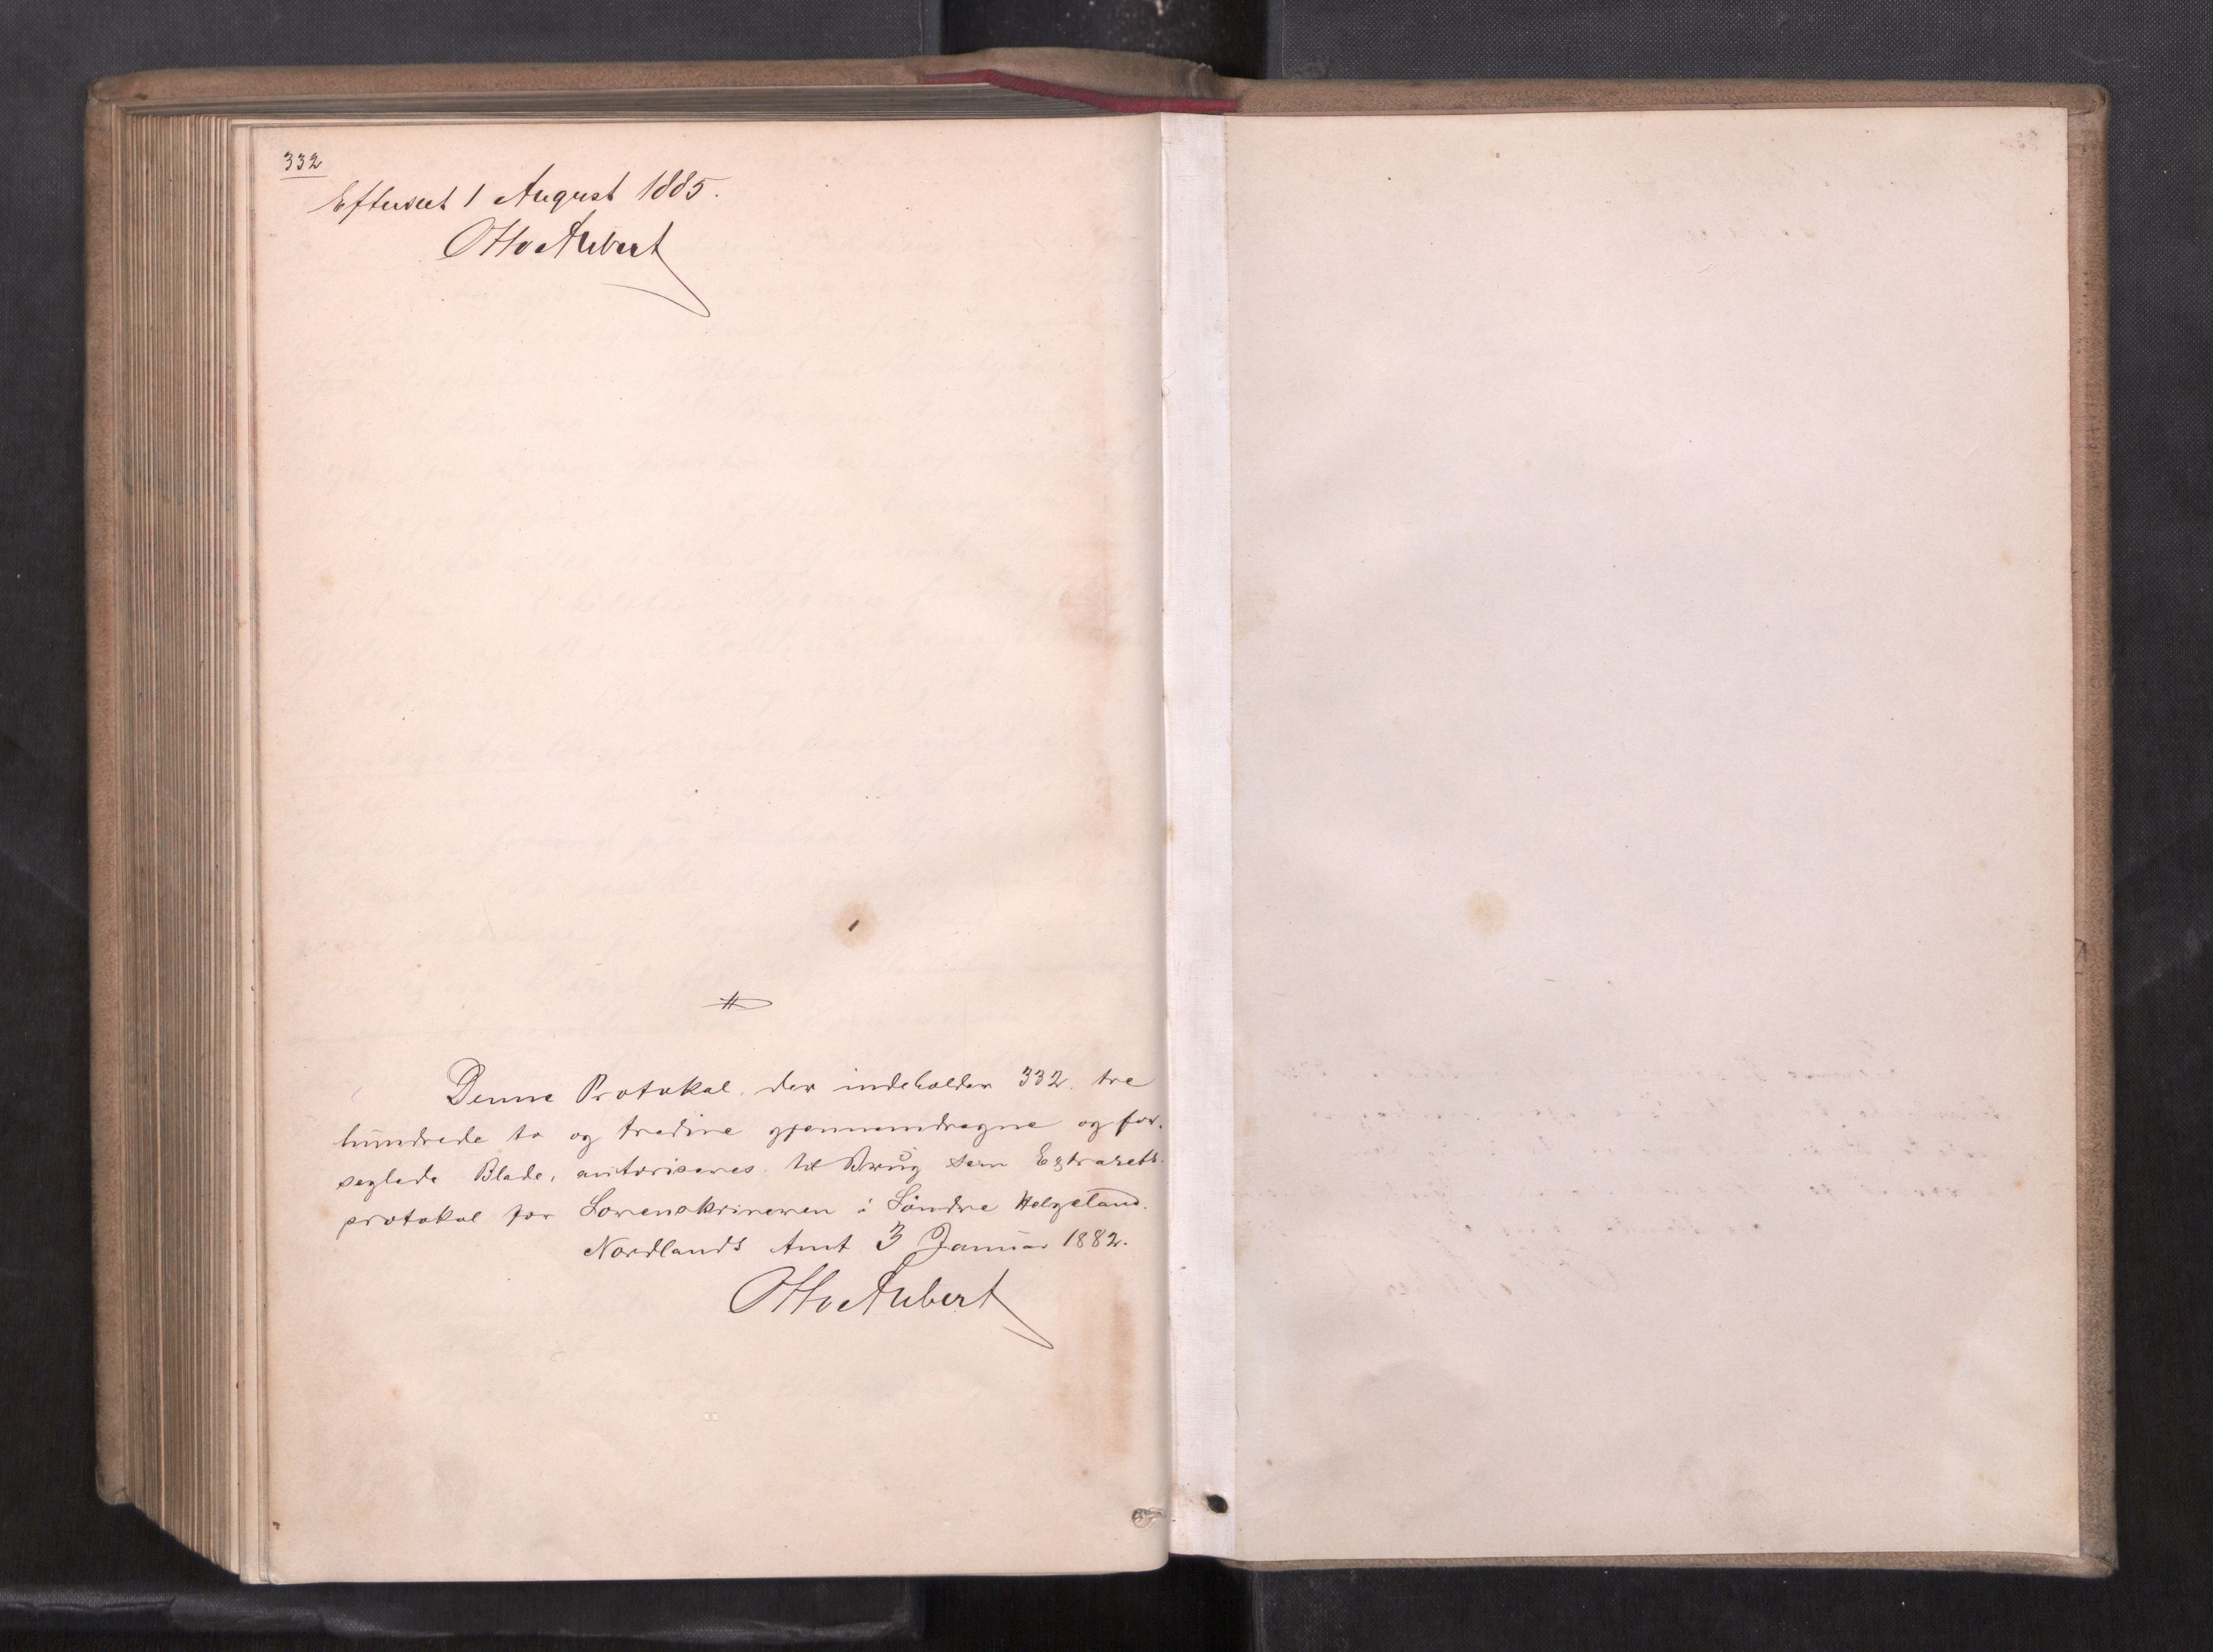 332
Efterseet 1 August 1885.
Otto Aubert
Denne Protokol, der indeholder 332, tre
hundrede to og tredive gjennemdragne og for-
seglede Blade, autoriseres til Brug som Extrarets-
protokol for Sorenskriveren i Söndre Helgeland.
Nordlands Amt 3 Januar 1882.
Otto Aubert